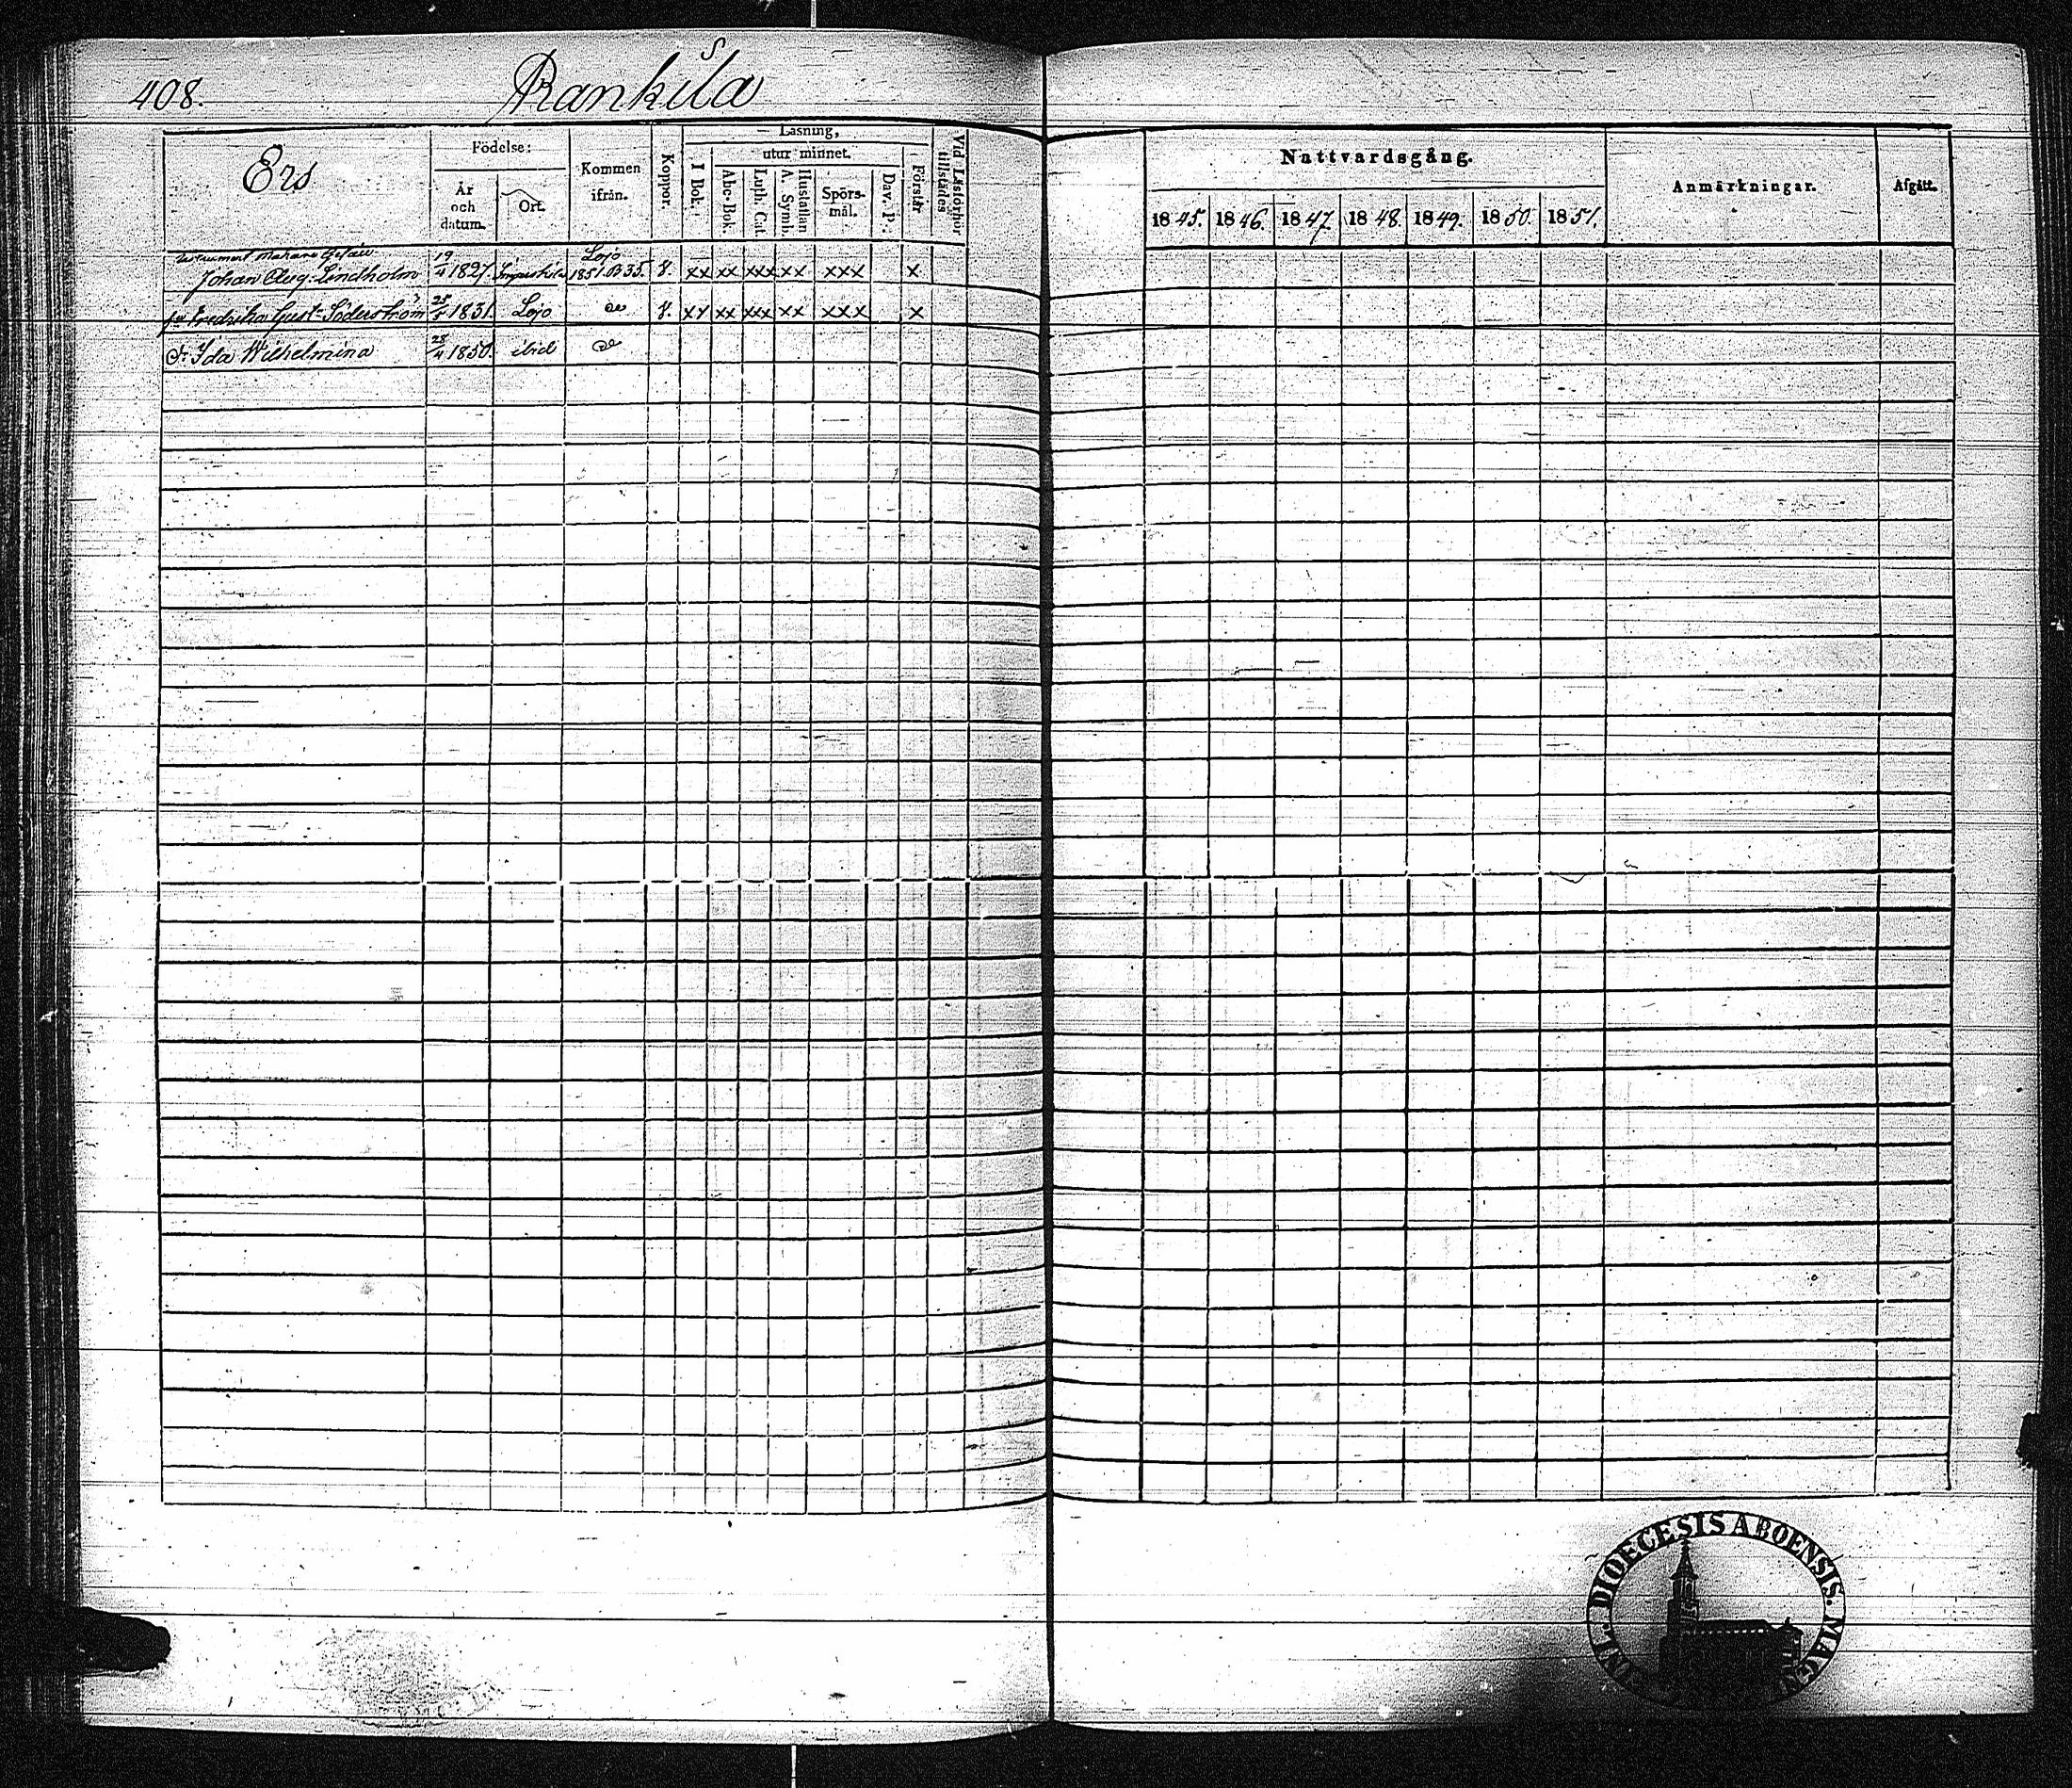 408.
Rankila
Ers
Födelse:
År
och
datum.
Ort.
Kommen
ifrån.
Koppor.
Läsning,
I Bok.
utur minnet.
Abc-Bok.
Luth. Cat.
A. Symb.
Hustaflan
Spörs-
mål.
Dav. P.
Förstår
Vid Läsförhör
tillstädes
Nattvardsgång.
1845. 1846. 1847. 1848. 1849. 1850. 1851.
Anmärkningar.
Afgått.
Instrument Makare Gesäll
Johan Aug. Lindholm 19/4 1827. Lojo 1851 B 35. xx xx xxx xx xxx x
Fredrika Gust. Söderström 1831. Lojo do xx xx xxx xx xxx x
Dr Ida Wilhelmina 28/4 1850. ibid do
DIOECESIS ABOENSIS. MAGNI